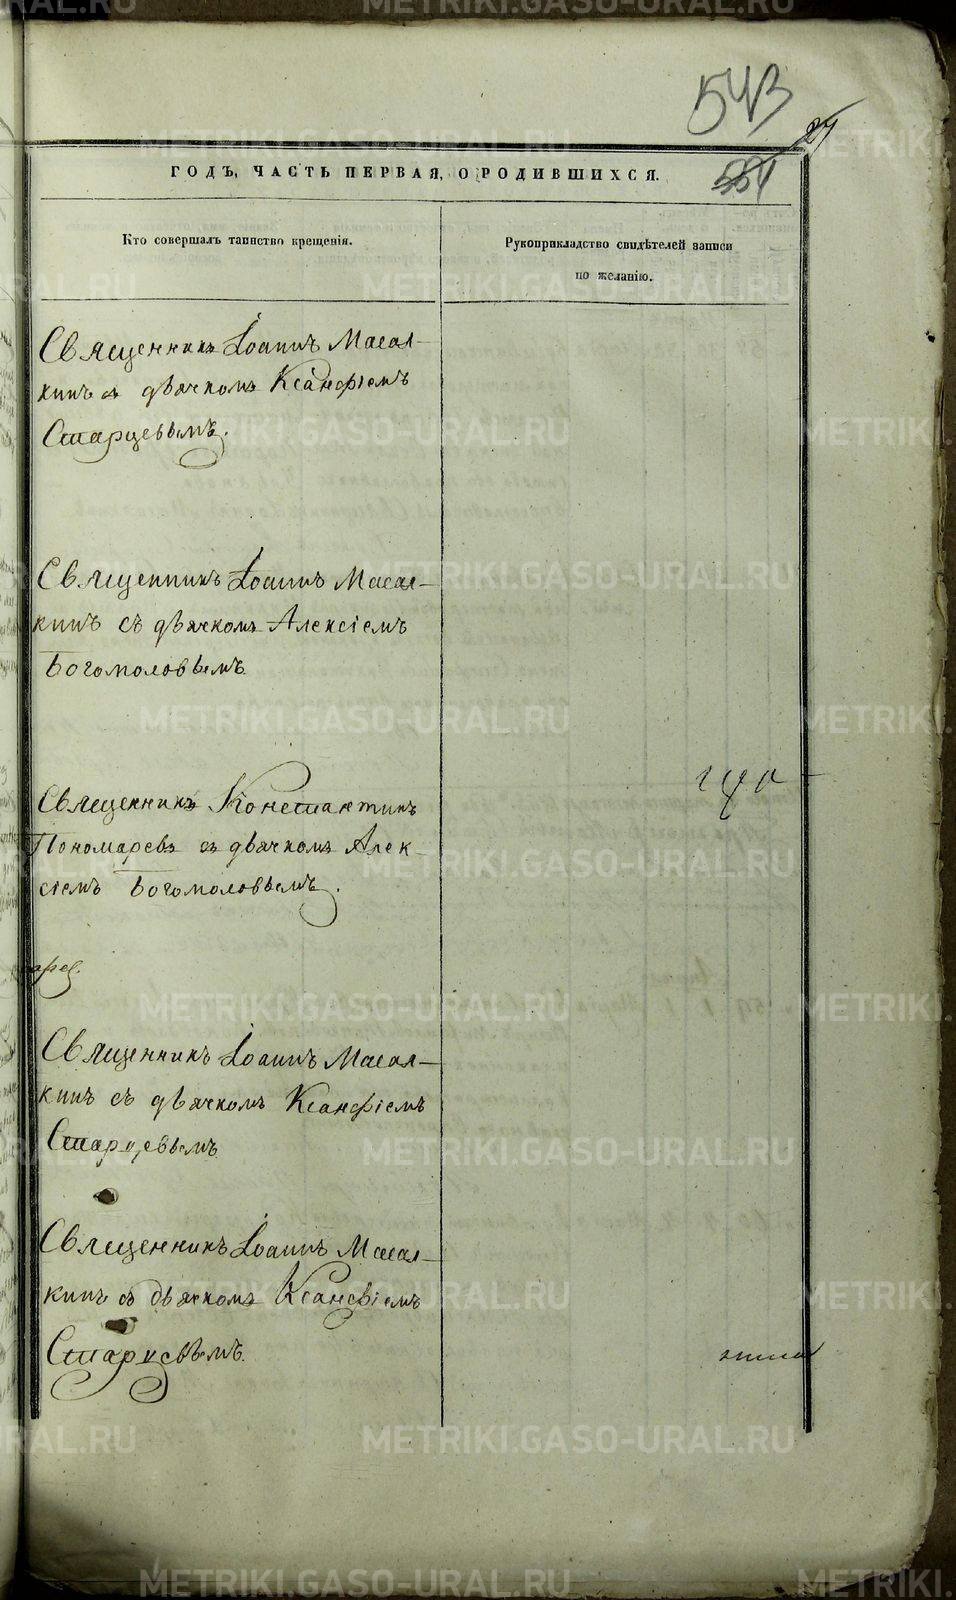 543
27
551
ГОДЪ, ЧАСТЬ ПЕРВАЯ, О РОДИВШИХСЯ.
Кто совершалъ таинство крещенія.
Рукоприкладство свидѣтелей записи
по желанію.
Священникъ Іоаннъ Масал-
кинъ съ дьячкомъ Ксанфіемъ
Старцевымъ.
Священникъ Іоаннъ Масал-
кинъ съ дьячкомъ Алексіемъ
Богомоловымъ
Священникъ Константинъ
Пономаревъ съ дьячкомъ Алек-
сіемъ Богомоловымъ.
Священникъ Іоаннъ Масал-
кинъ съ дьячкомъ Ксанфіемъ
Старцевымъ
Священникъ Іоаннъ Масал-
кинъ съ дьячкомъ Ксанфіемъ
Старцевымъ.
METRIKI.GASO-URAL.RU